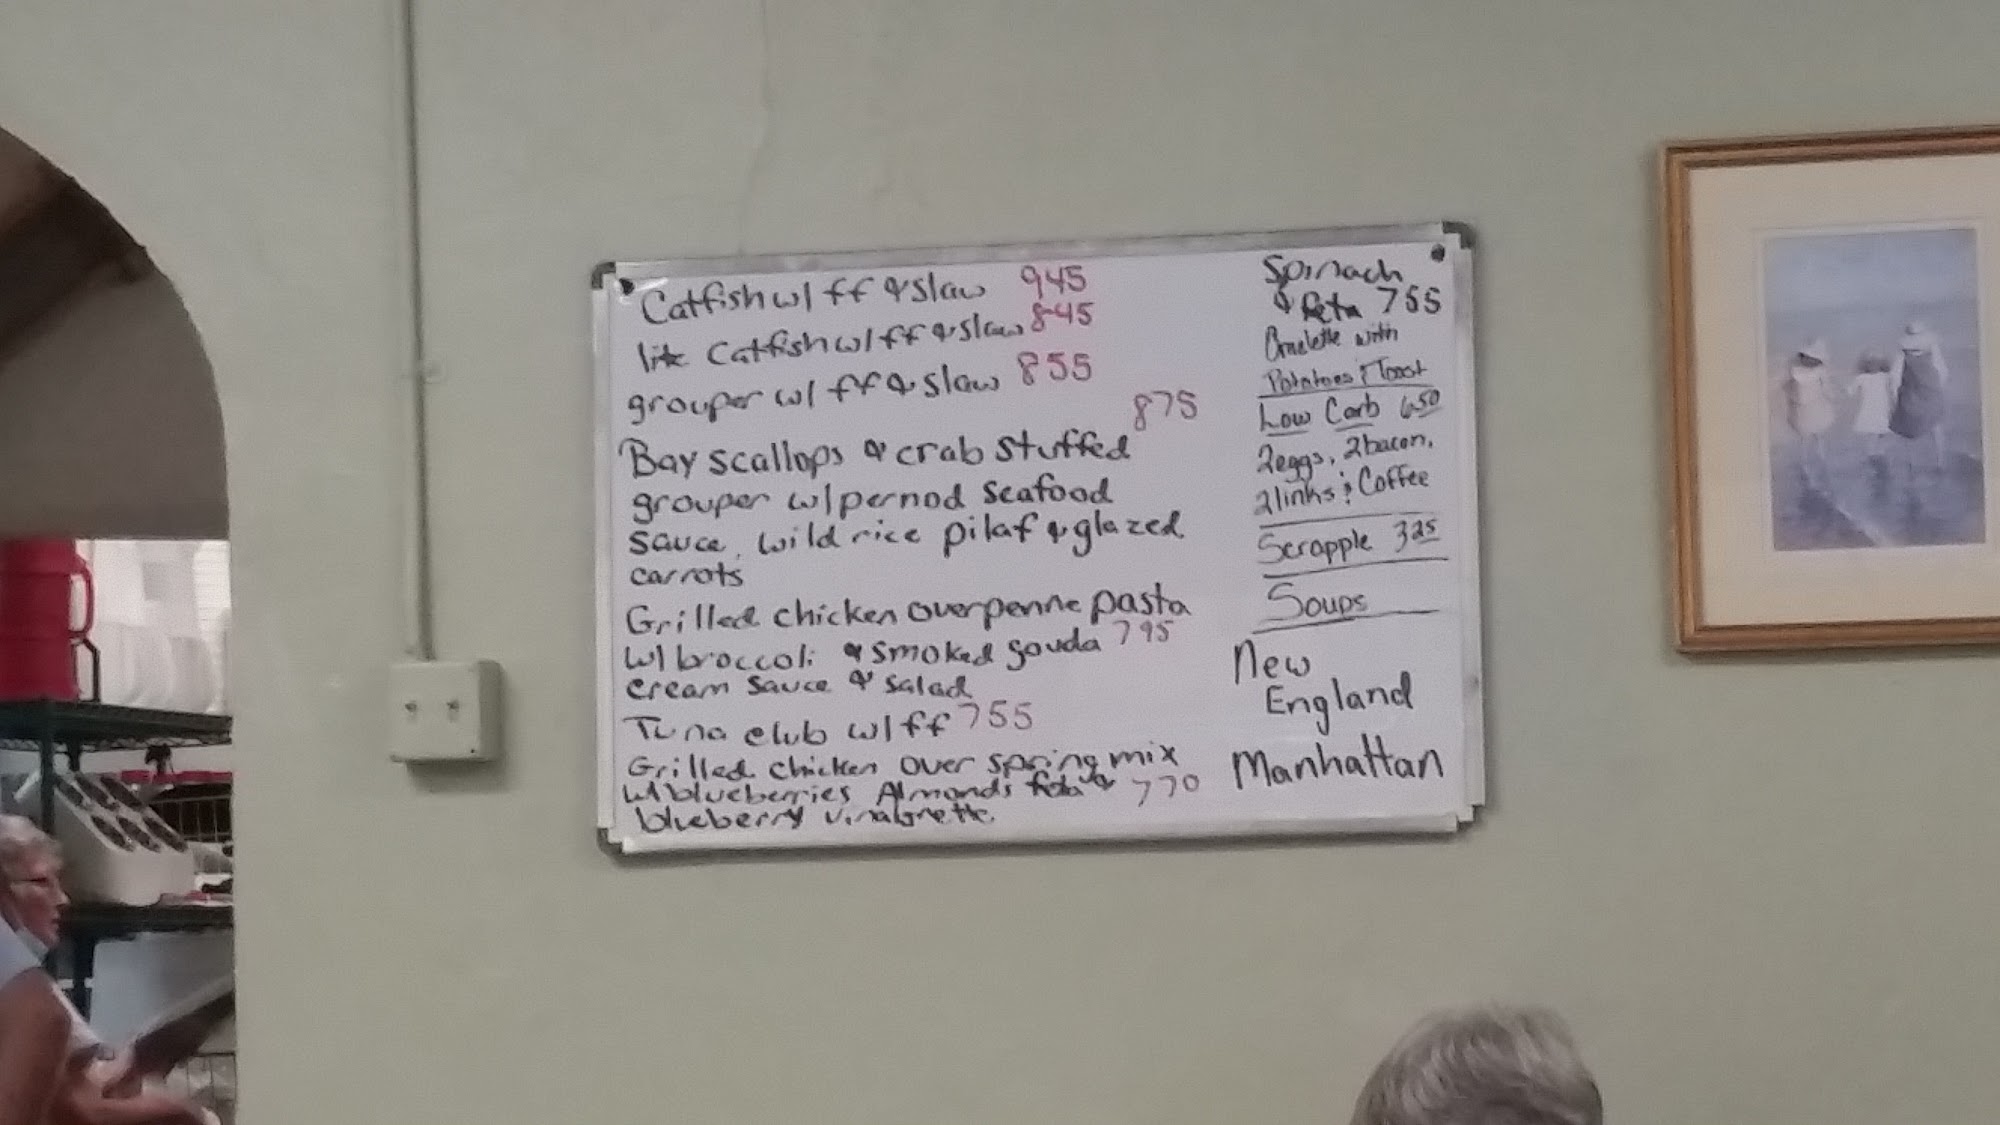 Catfish w/ ff & slaw 945
lite Catfish w/ ff & slaw 845
grouper w/ ff & slaw 855
875
Bay scallops & crab stuffed
grouper w/ pernod seafood
sauce, wild rice pilaf & glazed
carrots
Grilled chicken over penne pasta
w/ broccoli & smoked gouda 795
cream sauce & salad
Tuna club w/ ff 755
Grilled chicken over spring mix
w/ blueberries Almonds feta & 770
blueberry vinaigrette
Spinach
& Feta 755
Omelette with
Potatoes & Toast
Low Carb 650
2eggs, 2bacon,
2links & Coffee
Scrapple 325
Soups
New
England
Manhattan